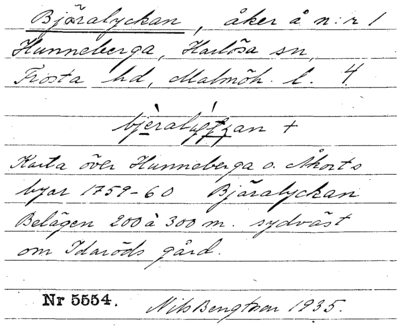 Bjäralyckan, åker å n:r 1
Hunneberga, Harlösa sn,
Frosta hd, Malmöh. l. 4.
Karta över Hunneberga o. Åkarts
byar 1759-60 Bjäralyckan
Belägen 200 à 300 m. sydväst
om Idaröds gård.
Nr 5554. Nils Bengtson 1935.